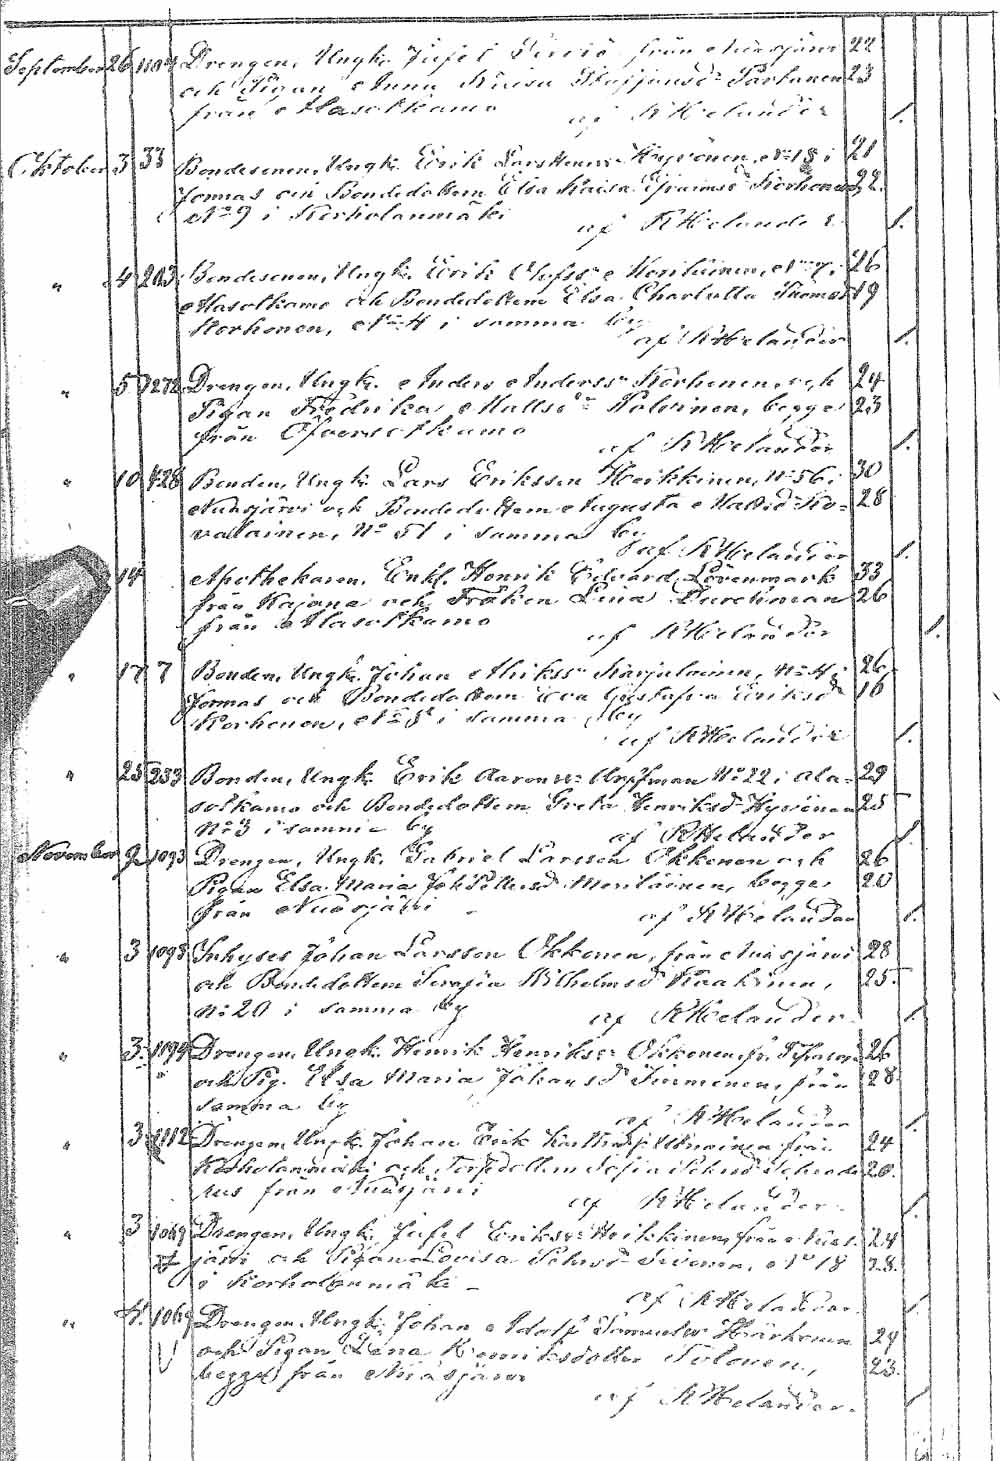 September 26 1104 Drengen, Ungk. Josef från Nuasjärvi 22
och Pigan Anna Kaisa Staffansd:r Partanen 23
från Alasotkamo
af K Helander 1.
Oktober 3 33 Bondesonen, Ungk. Erik Larsson Hyvönen, N:o 18 i 21
Jormas och Bondedottern Elsa Kaisa Efraimsd Korhonen, 22.
N:o 9 i Korholanmäki
af K Helander 1.
" 4 203 Bondesonen, Ungk. Erik Olofss:n Meriläinen, N:o 7 i 26
Alasotkamo och Bondedottern Elsa Charlotta Thomasd 19
Korhonen, N:o 4 i samma by
af K Helander 1.
" 5 1272 Drengen, Ungk. Anders Anderss:n Korhonen, och 24
Pigan Fredrika Mattsd:r Polvinen, begge 23
från Öfversotkamo
af K Helander 1.
" 10 428 Bonden, Ungk. Lars Eriksson Heikkinen, N:o 56 i 30
Nuasjärvi och Bondedottern Augusta Mattsd:r Ko- 28
valainen, N:o 51 i samma by
af K Helander 1.
14 Apothekaren, Enkl. Henrik Edvard Lövenmark 33
från Kajana och Fröken Lina Durchman 26
från Alasotkamo
af K Helander 1.
" 17 7 Bonden, Ungk. Johan Karjalainen, N:o 4 i 26
Jormas och Bondedottern Eva Gustafva Eriksd:r 16
Korhonen, N:o 8 i samma by
af K Helander 1.
" 25 233 Bonden, Ungk. Erik Aaronss:n N:o 22 i Ala- 29
sotkamo och Bondedottern Greta Henriksd Hyvönen 25
N:o 3 i samma by
af K Helander 1.
November 2 1093 Drengen, Ungk. Gabriel Larsson Okkonen och 26
Pigan Elsa Maria Meriläinen, begge 20
från Nuasjärvi
af K Helander 1.
" 3 1093 Inhyses Johan Larsson Okkonen, från Nuasjärvi 28
och Bondedottern Serafia Wilhelmsd Kaakinen, 25.
N:o 20 i samma by
af K Helander 1.
" 3 1094 Drengen, Ungk. Henrik Henrikss:n Okkonen, fr. 26
och Pig. Elsa Maria Johansd från 28.
samma by
af K Helander 1.
" 3 1112 Drengen, Ungk. Johan Erik från 24
Korholanmäki och Torpdottern Sofia 20.
från Nuasjärvi
af K Helander 1.
" 3 1069 Drengen, Ungk. Josef Erikss:n Heikkinen, från Nuas- 24
järvi och Pigan Lovisa N:o 18 28.
i Korholanmäki
af K Helander 1.
" 4. 1069 Drengen, Ungk. Johan Adolf Härkönen 29
och Pigan Lena Henriksdotter Tolonen, 23.
begge från Nuasjärvi
af K Helander. 1